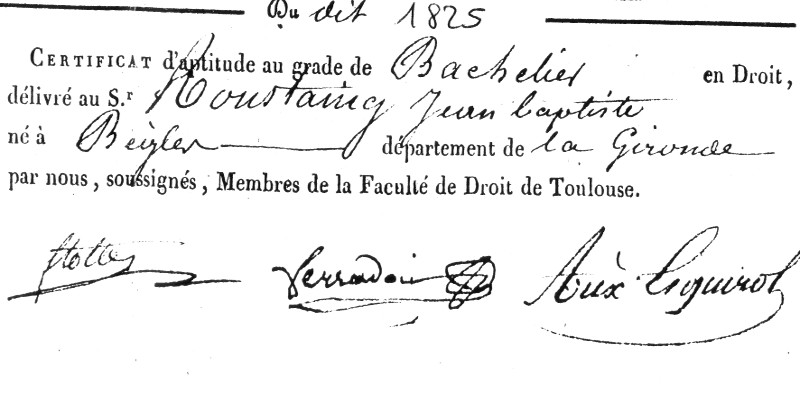 Du dit 1825
CERTIFICAT d'aptitude au grade de Bachelier en Droit,
délivré au S.r Roustaing Jean baptiste
né à Bègles département de la Gironde
par nous, soussignés, Membres de la Faculté de Droit de Toulouse.
Aux Esquirol